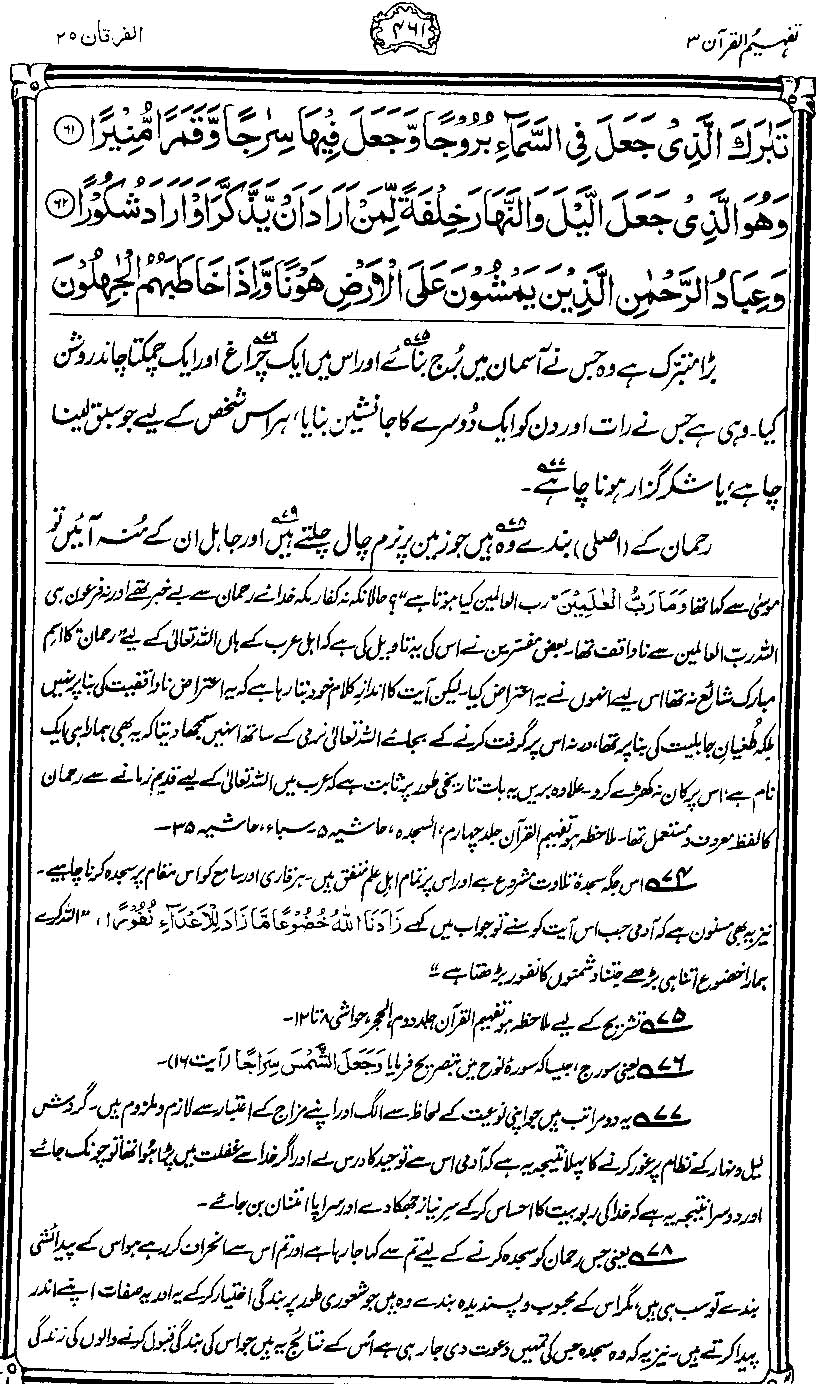 تفہیم القرآن ۳
۴۶۱
الفرقان ۲۵
تَبٰرَكَ الَّذِىْ جَعَلَ فِى السَّمَآءِ بُرُوْجًا وَّجَعَلَ فِيْهَا سِرٰجًا وَّقَمَرًا مُّنِيْرًا ۶۱
وَهُوَ الَّذِىْ جَعَلَ الَّيْلَ وَالنَّهَارَ خِلْفَةً لِّمَنْ اَرَادَ اَنْ يَّذَّكَّرَ اَوْ اَرَادَ شُكُوْرًا ۶۲
وَعِبَادُ الرَّحْمٰنِ الَّذِيْنَ يَمْشُوْنَ عَلَى الْاَرْضِ هَوْنًا وَّاِذَا خَاطَبَهُمُ الْجٰهِلُوْنَ
بڑا متبرّک ہے وہ جس نے آسمان میں بُرج بنائے۷۵ اور اس میں ایک چراغ۷۶ اور ایک چمکتا چاند روشن
کیا۔ وہی ہے جس نے رات اور دن کو ایک دُوسرے کا جانشین بنایا، ہر اس شخص کے لیے جو سبق لینا
چاہے، یا شکر گزار ہونا چاہے۷۷۔
رحمان کے (اصلی) بندے۷۸ وہ ہیں جو زمین پر نرم چال چلتے ہیں۷۹ اور جاہل ان کے مُنہ آئیں تو
موسیٰ سے کہا تھا وَمَا رَبُّ الْعٰلَمِيْنَ "رب العالمین کیا ہوتا ہے"؟ حالانکہ نہ کفار مکہ خدائے رحمان سے بے خبر تھے اور نہ فرعون ہی
اللہ رب العالمین سے ناواقف تھا۔ بعض مفسرین نے اس کی یہ تاویل کی ہے کہ اہل عرب کے ہاں اللہ تعالیٰ کے لیے "رحمان" کا اسم
مبارک شائع نہ تھا اس لیے انہوں نے یہ اعتراض کیا۔ لیکن آیت کا اندازِ کلام خود بتا رہا ہے کہ یہ اعتراض ناواقفیت کی بنا پر نہیں
بلکہ طُغیانِ جاہلیت کی بنا پر تھا، ورنہ اس پر گرفت کرنے کے بجائے اللہ تعالیٰ نرمی کے ساتھ انہیں سمجھا دیتا کہ یہ بھی ہمارا ہی ایک
نام ہے، اس پر کان نہ کھڑے کرو۔ علاوہ بریں یہ بات تاریخی طور پر ثابت ہے کہ عرب میں اللہ تعالیٰ کے لیے قدیم زمانے سے رحمان
کا لفظ معروف و مستعمل تھا۔ ملاحظہ ہو تفہیم القرآن جلد چہارم، السجدہ، حاشیہ ۵۔ سباء، حاشیہ ۳۵۔
۷۴ اس جگہ سجدۂ تلاوت مشروع ہے اور اس پر تمام اہل علم متفق ہیں۔ ہر قاری اور سامع کو اس مقام پر سجدہ کرنا چاہیے۔
نیز یہ بھی مسنون ہے کہ آدمی جب اس آیت کو سنے تو جواب میں کہے زَادَنَا اللهُ خُضُوْعًا مَّا زَادَ لِلْاَعْدَآءِ نُفُوْرًا، "اللہ کرے
ہمارا خضوع اتنا ہی بڑھے جتنا دشمنوں کا نفور بڑھتا ہے"۔
۷۵ تشریح کے لیے ملاحظہ ہو تفہیم القرآن جلد دوم، الحجر، حواشی ۸ تا ۱۲۔
۷۶ یعنی سورج، جیسا کہ سورۂ نوح میں بتصریح فرمایا وَجَعَلَ الشَّمْسَ سِرَاجًا (آیت ۱۶)۔
۷۷ یہ دو مراتب ہیں جو اپنی نوعیت کے لحاظ سے الگ اور اپنے مزاج کے اعتبار سے لازم و ملزوم ہیں۔ گردش
لیل و نہار کے نظام پر غور کرنے کا پہلا نتیجہ یہ ہے کہ آدمی اس سے توحید کا درس لے اور اگر خدا سے غفلت میں پڑا ہوا تھا تو چونک جائے۔
اور دوسرا نتیجہ یہ ہے کہ خدا کی ربوبیت کا احساس کر کے سر نیاز جھکا دے اور سراپا امتنان بن جائے۔
۷۸ یعنی جس رحمان کو سجدہ کرنے کے لیے تم سے کہا جا رہا ہے اور تم اس سے انحراف کر رہے ہو اس کے پیدائشی
بندے تو سب ہی ہیں، مگر اس کے محبوب و پسندیدہ بندے وہ ہیں جو شعوری طور پر بندگی اختیار کر کے یہ اور یہ صفات اپنے اندر
پیدا کرتے ہیں۔ نیز یہ کہ وہ سجدہ جس کی تمہیں دعوت دی جا رہی ہے اُس کے نتائج یہ ہیں جو اس کی بندگی قبول کرنے والوں کی زندگی